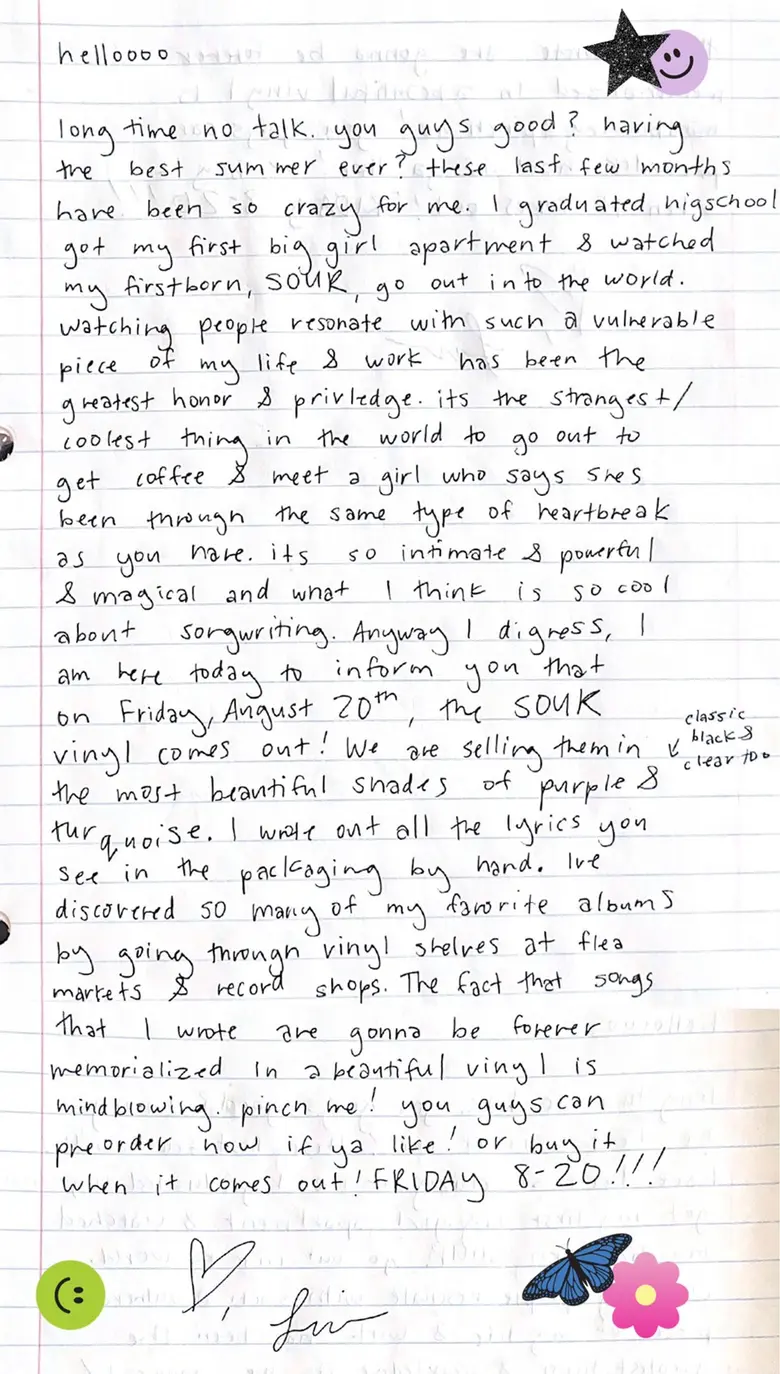 helloooo
long time no talk. you guys good? having
the best summer ever? these last few months
have been so crazy for me. I graduated higschool
got my first big girl apartment & watched
my firstborn, SOUR, go out into the world.
watching people resonate with such a vulnerable
piece of my life & work has been the
greatest honor & privledge. its the strangest/
coolest thing in the world to go out to
get coffee & meet a girl who says shes
been through the same type of heartbreak
as you have. its so intimate & powerful
& magical and what I think is so cool
about songwriting. Anyway I digress, I
am here today to inform you that
on Friday, August 20th, the SOUR
vinyl comes out! We are selling them in
classic
black &
clear too
the most beautiful shades of purple &
turquoise. I wrote out all the lyrics you
see in the packaging by hand. Ive
discovered so many of my favorite albums
by going through vinyl shelves at flea
markets & record shops. The fact that songs
that I wrote are gonna be forever
memorialized in a beautiful vinyl is
mindblowing. pinch me! you guys can
preorder now if ya like! or buy it
when it comes out! FRIDAY 8-20!!!